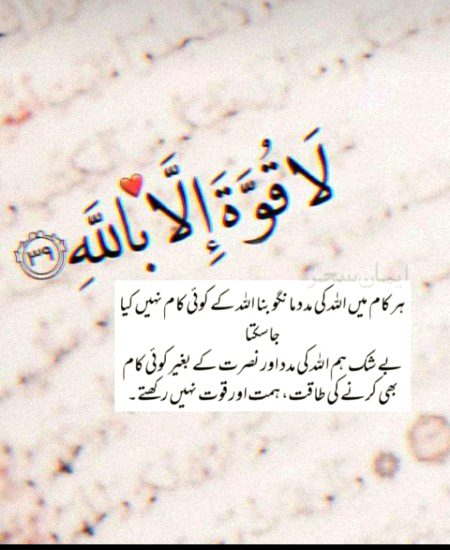 لَا قُوَّةَ إِلَّا بِاللَّهِ ٣٩
ایمان سحر
ہر کام میں اللہ کی مدد مانگو بنا اللہ کے کوئی کام نہیں کیا
جا سکتا
بے شک ہم اللہ کی مدد اور نصرت کے بغیر کوئی کام
بھی کرنے کی طاقت، ہمت اور قوت نہیں رکھتے۔